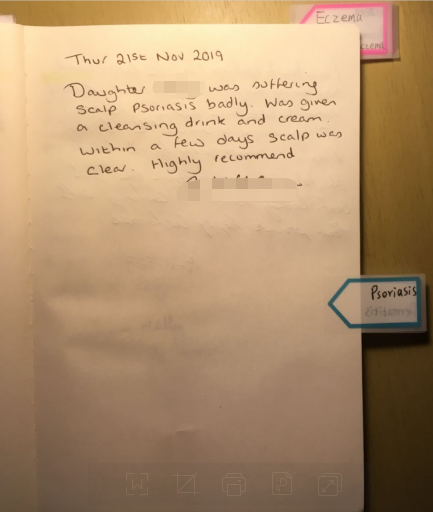 Eczema
Thur 21st Nov 2019
Daughter was suffering
Scalp Psoriasis badly. Was given
a cleansing drink and cream.
Within a few days scalp was
clear. Highly recommend
Psoriasis